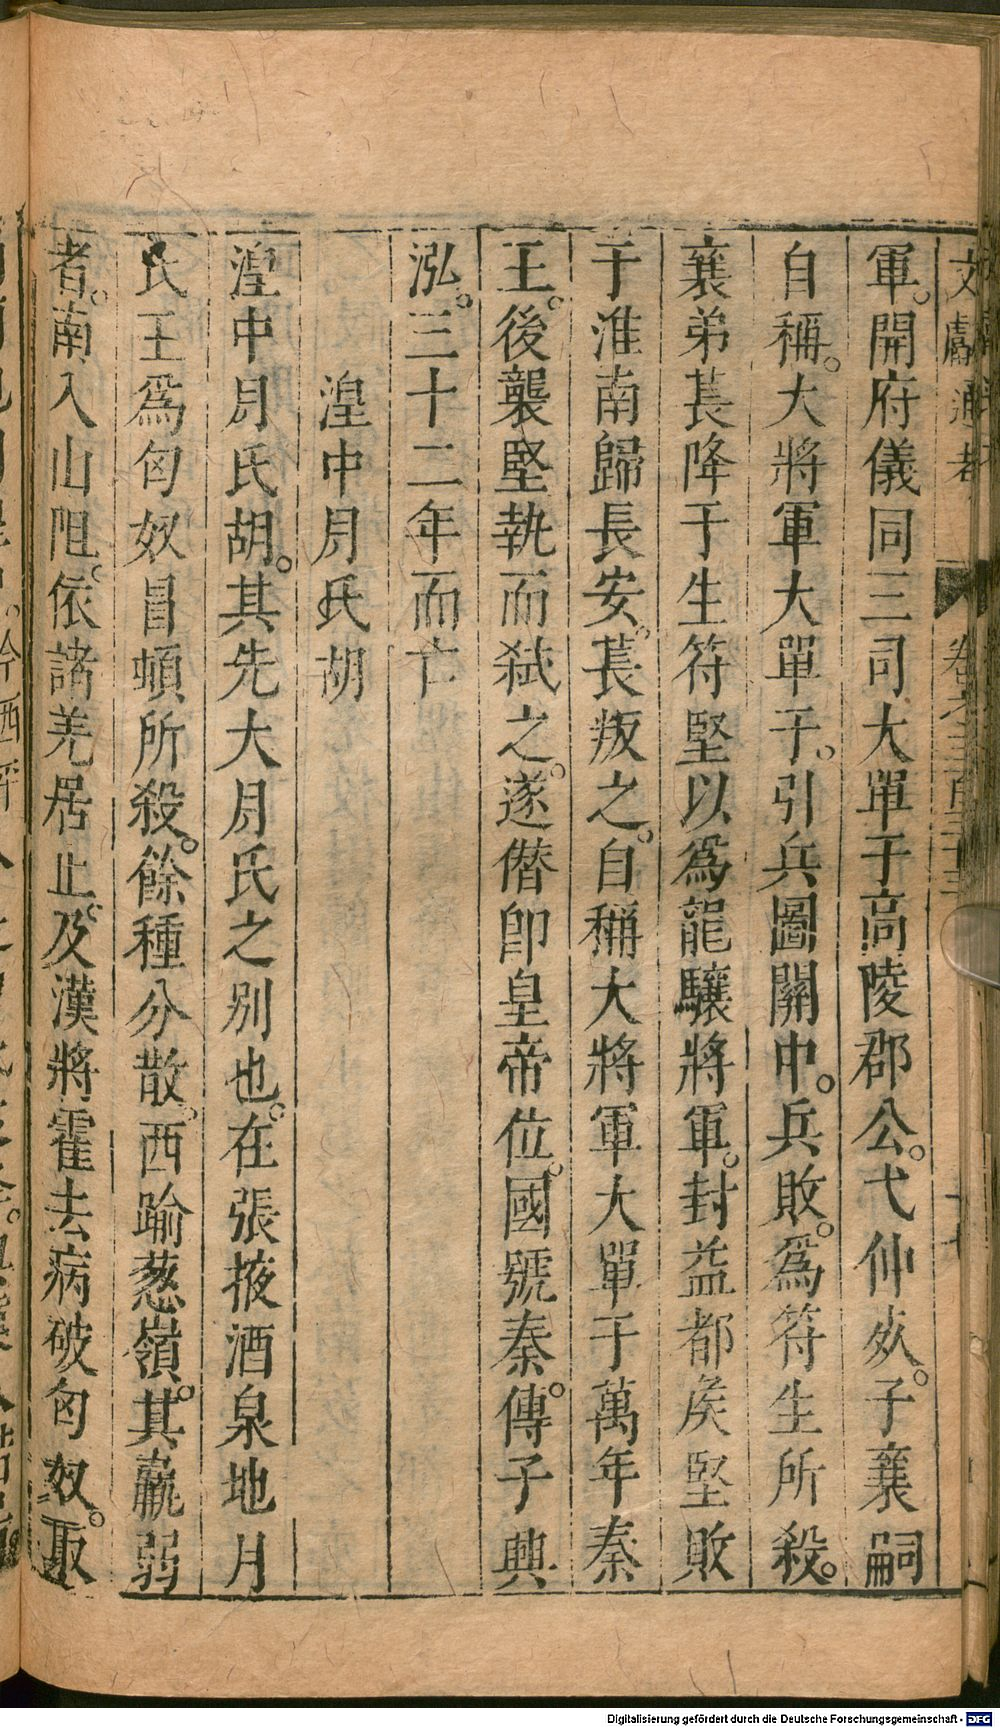 文獻通考 卷之三百三十三
軍。開府儀同三司大單于高陵郡公。弋仲死。子襄嗣
自稱。大將軍大單于。引兵圖關中。兵敗。爲符生所殺。
襄弟萇降于生符堅以爲龍驤將軍。封益都侯堅敗
于淮南歸長安。萇叛之。自稱大將軍大單于萬年秦
王。後襲堅執而弑之。遂僣即皇帝位。國號秦。傳子興
泓。三十二年而亡
湟中月氏胡
湟中月氏胡。其先大月氏之别也。在張掖酒泉地月
氏王爲匈奴冒頓所殺。餘種分散。西踰葱嶺。其羸弱
者。南入山阻。依諸羌居止。及漢將霍去病破匈奴。取
Digitalisierung gefördert durch die Deutsche Forschungsgemeinschaft - DFG